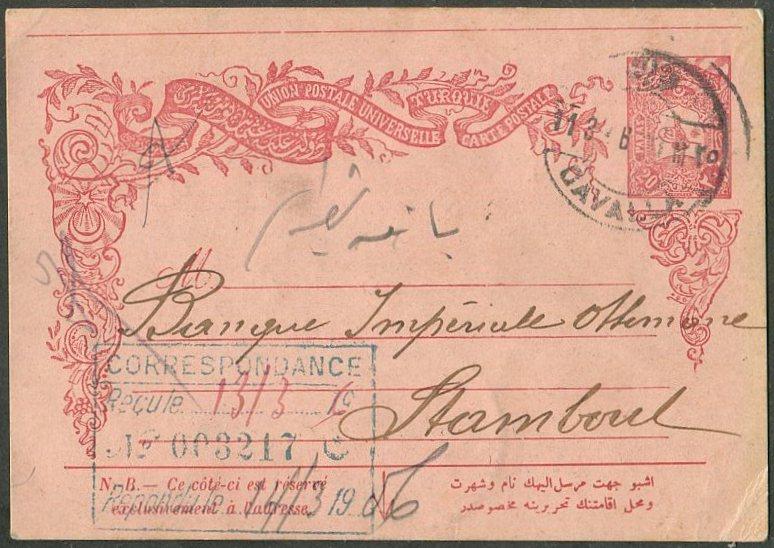 UNION POSTALE UNIVERSELLE
TURQUIE
CARTE POSTALE
20
CAVALLE
M
Banque Impériale Ottomane
Stamboul
CORRESPONDANCE
Reçu le 13/3
Nº 003217 C
Répondu le 14/3 1906
N. B.— Ce côté-ci est réservé
exclusivement à l'adresse.
اشبو جهت مرسل اليهك نام و شهرت
و محل اقامتنك تحريرينه مخصوصدر